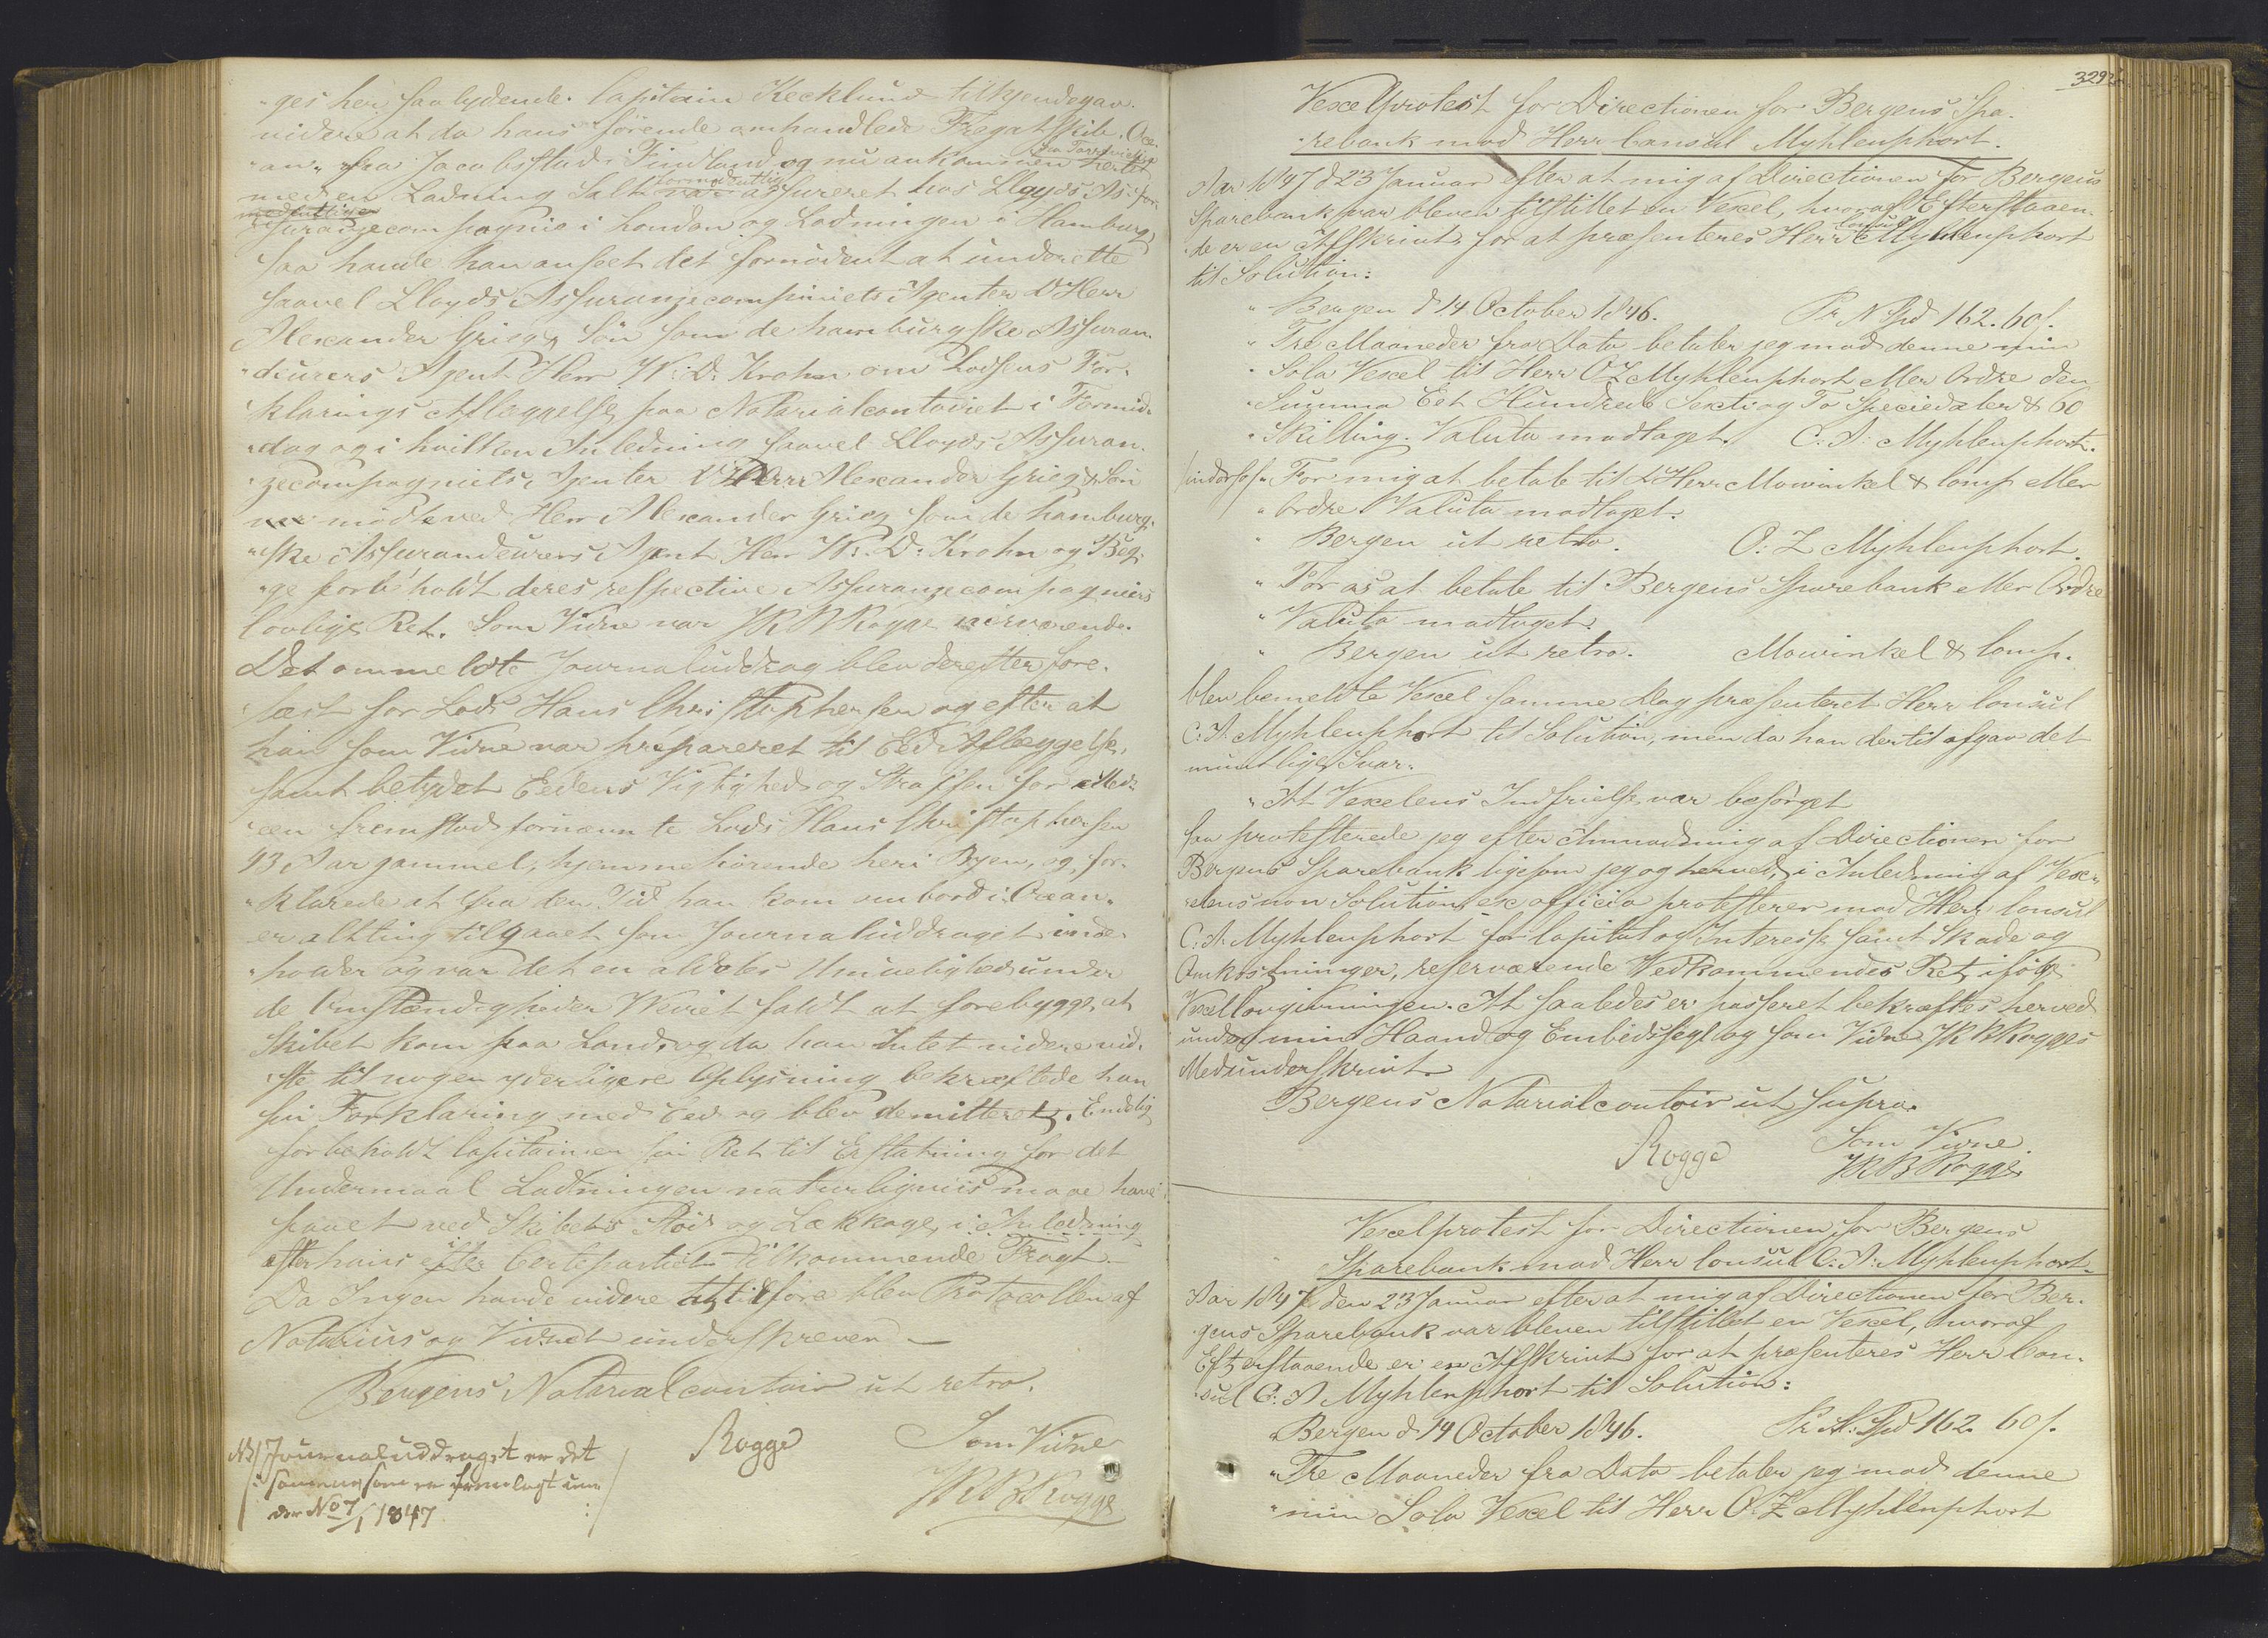 "ges her saalydende. Capitain Kecklund tilkjendegav
videre at da hans førende omhandlede Fregatskib, Oce-
"an" fra Jacobstad i Findland og nu ankommen hertil
fra Torrevieja
med en Ladning Salt var assureret hos Lloyds As-
formodentlig
surangecompagnie i London og Ladningen i Hamburg,
saa havde han anseet det fornødent at underrette
saavel Lloyds Assurangecompaniets Agenter D'Herr
Alexander Grieg & Søn som de hamburgske Assuran-
"deurers Agent Herr W. D. Krohn om Lodsens For-
klarings Aflæggelse paa Notarialcontoiret i Formid-
"dag og i hvilken Anledning saavel Lloyds Assuran-
"gecompagniets Agenter D'Herrer Alexander Grieg & Søn
mødte ved Herr Alexander Grieg som de hamburg-
"ske Assurandeurers Agent Herr W. D. Krohn og Beg-
"ge forbeholdt deres respective Assurangecompagniers
lovlige Ret. Som Vidne var J K B Rogge nærværende.
Det ommeldte Journaluddrag blev derefter fore-
læst for Lods Hans Christophersen og efter at
han som Vidne var præpareret til Eds Aflæggelse,
samt betydet Eedens Vigtighed og Straffen for Med-
"een fremstod fornævnte Lods Hans Christophersen
43 Aar gammel, hjemmehørende her i Byen, og for-
"klarede at fra den Tid han kom ombord i Ocean,
er alting tilgaaet som Journaluddraget inde-
"holder og var det en aldeles Umuelighed under
de Omstændigheder Veiret faldt at forebygge, at
Skibet kom paa Land, og da han Intet videre vid-
"ste til nogen yderligere Oplysning bekræftede han
sin Forklaring med Eed og blev demitteret. Endelig
forbeholdt Capitainen sin Ret til Erstatning for det
Undermaal Ladningen naturligviis maae have
faaet ved Skibets Stød og Lækkage, i Anledning
efter hans efter Certepartiet tilkommende Fragt.
Da Ingen havde videre at tilføre blev Protocollen af
Notarius og Vidnet underskreven —
Bergens Notarialcontoir ut retro.
Rogge Som Vidne
J K B Rogge
NB/ Journaluddraget er det
/: samme som er fremlagt un-
der No 7/1 1847 :/
329
Vexelprotest for Directionen for Bergens Spa-
"rebank mod Herr Consul Myhlenphort.
Aar 1847 d 23 Januar efter at mig af Directionen for Bergens
Sparebank var bleven tilstillet en Vexel, hvoraf Efterstaaen-
"de er en Afskrivt, for at præsenteres Herr Consul Myhlenphort
til Solution:
" Bergen d 14 October 1846. Pr N Spd 162. 60 s.
" Tre Maaneder fra Dato betaler jeg mod denne min
" Sola Vexel til Herr O Z Myhlenphort eller Ordre den
" Summa Eet Hundrede Sexti og To Speciedaler & 60
" Skilling. Valuta modtaget. C. A. Myhlenphort.
" For mig at betale til D'Herr Mowinkel & Comp eller
" Ordre. Valuta modtaget.
" Bergen ut retro. O. Z Myhlenphort.
" For os at betale til Bergens Sparebank eller Ordre
" Valuta modtaget.
" Bergen ut retro. Mowinkel & Comp.
blev bemeldte Vexel samme Dag præsenteret Herr Consul
C. A. Myhlenphort til Solution, men da han dertil afgav det
mundtlige Svar:
" At Vexelens Indfrielse var besørget
saa protesterede jeg efter Anmodning af Directionen for
Bergens Sparebank ligesom jeg og herved, i Anledning af Vex-
"elens non Solution ex officio protesterer mod Herr Consul
C. A. Myhlenphort for Capital og Interesse samt Skade og
Omkostninger, reserverende Vedkommendes Ret ifølge
Vexellovgivningen. At saaledes er passeret bekræftes herved
under min Haand og Embedssegl og som Vidne J K B Rogges
Medunderskrivt.
Bergens Notarialcontoir ut supra.
Rogge Som Vidne
J K B Rogge.
Vexelprotest for Directionen for Bergens
Sparebank mod Herr Consul C. A. Myhlenphort.
Aar 1847 den 23 Januar efter at mig af Directionen for Ber-
"gens Sparebank var bleven tilstillet en Vexel, hvoraf
Efterstaaende er en Afskrivt for at præsenteres Herr Con-
"sul C. A. Myhlenphort til Solution:
" Bergen d 14 October 1846. Pr N. Spd 162. 60 s.
" Tre Maaneder fra Dato betaler jeg mod denne
" min Sola Vexel til Herr O. Z Myhlenphort